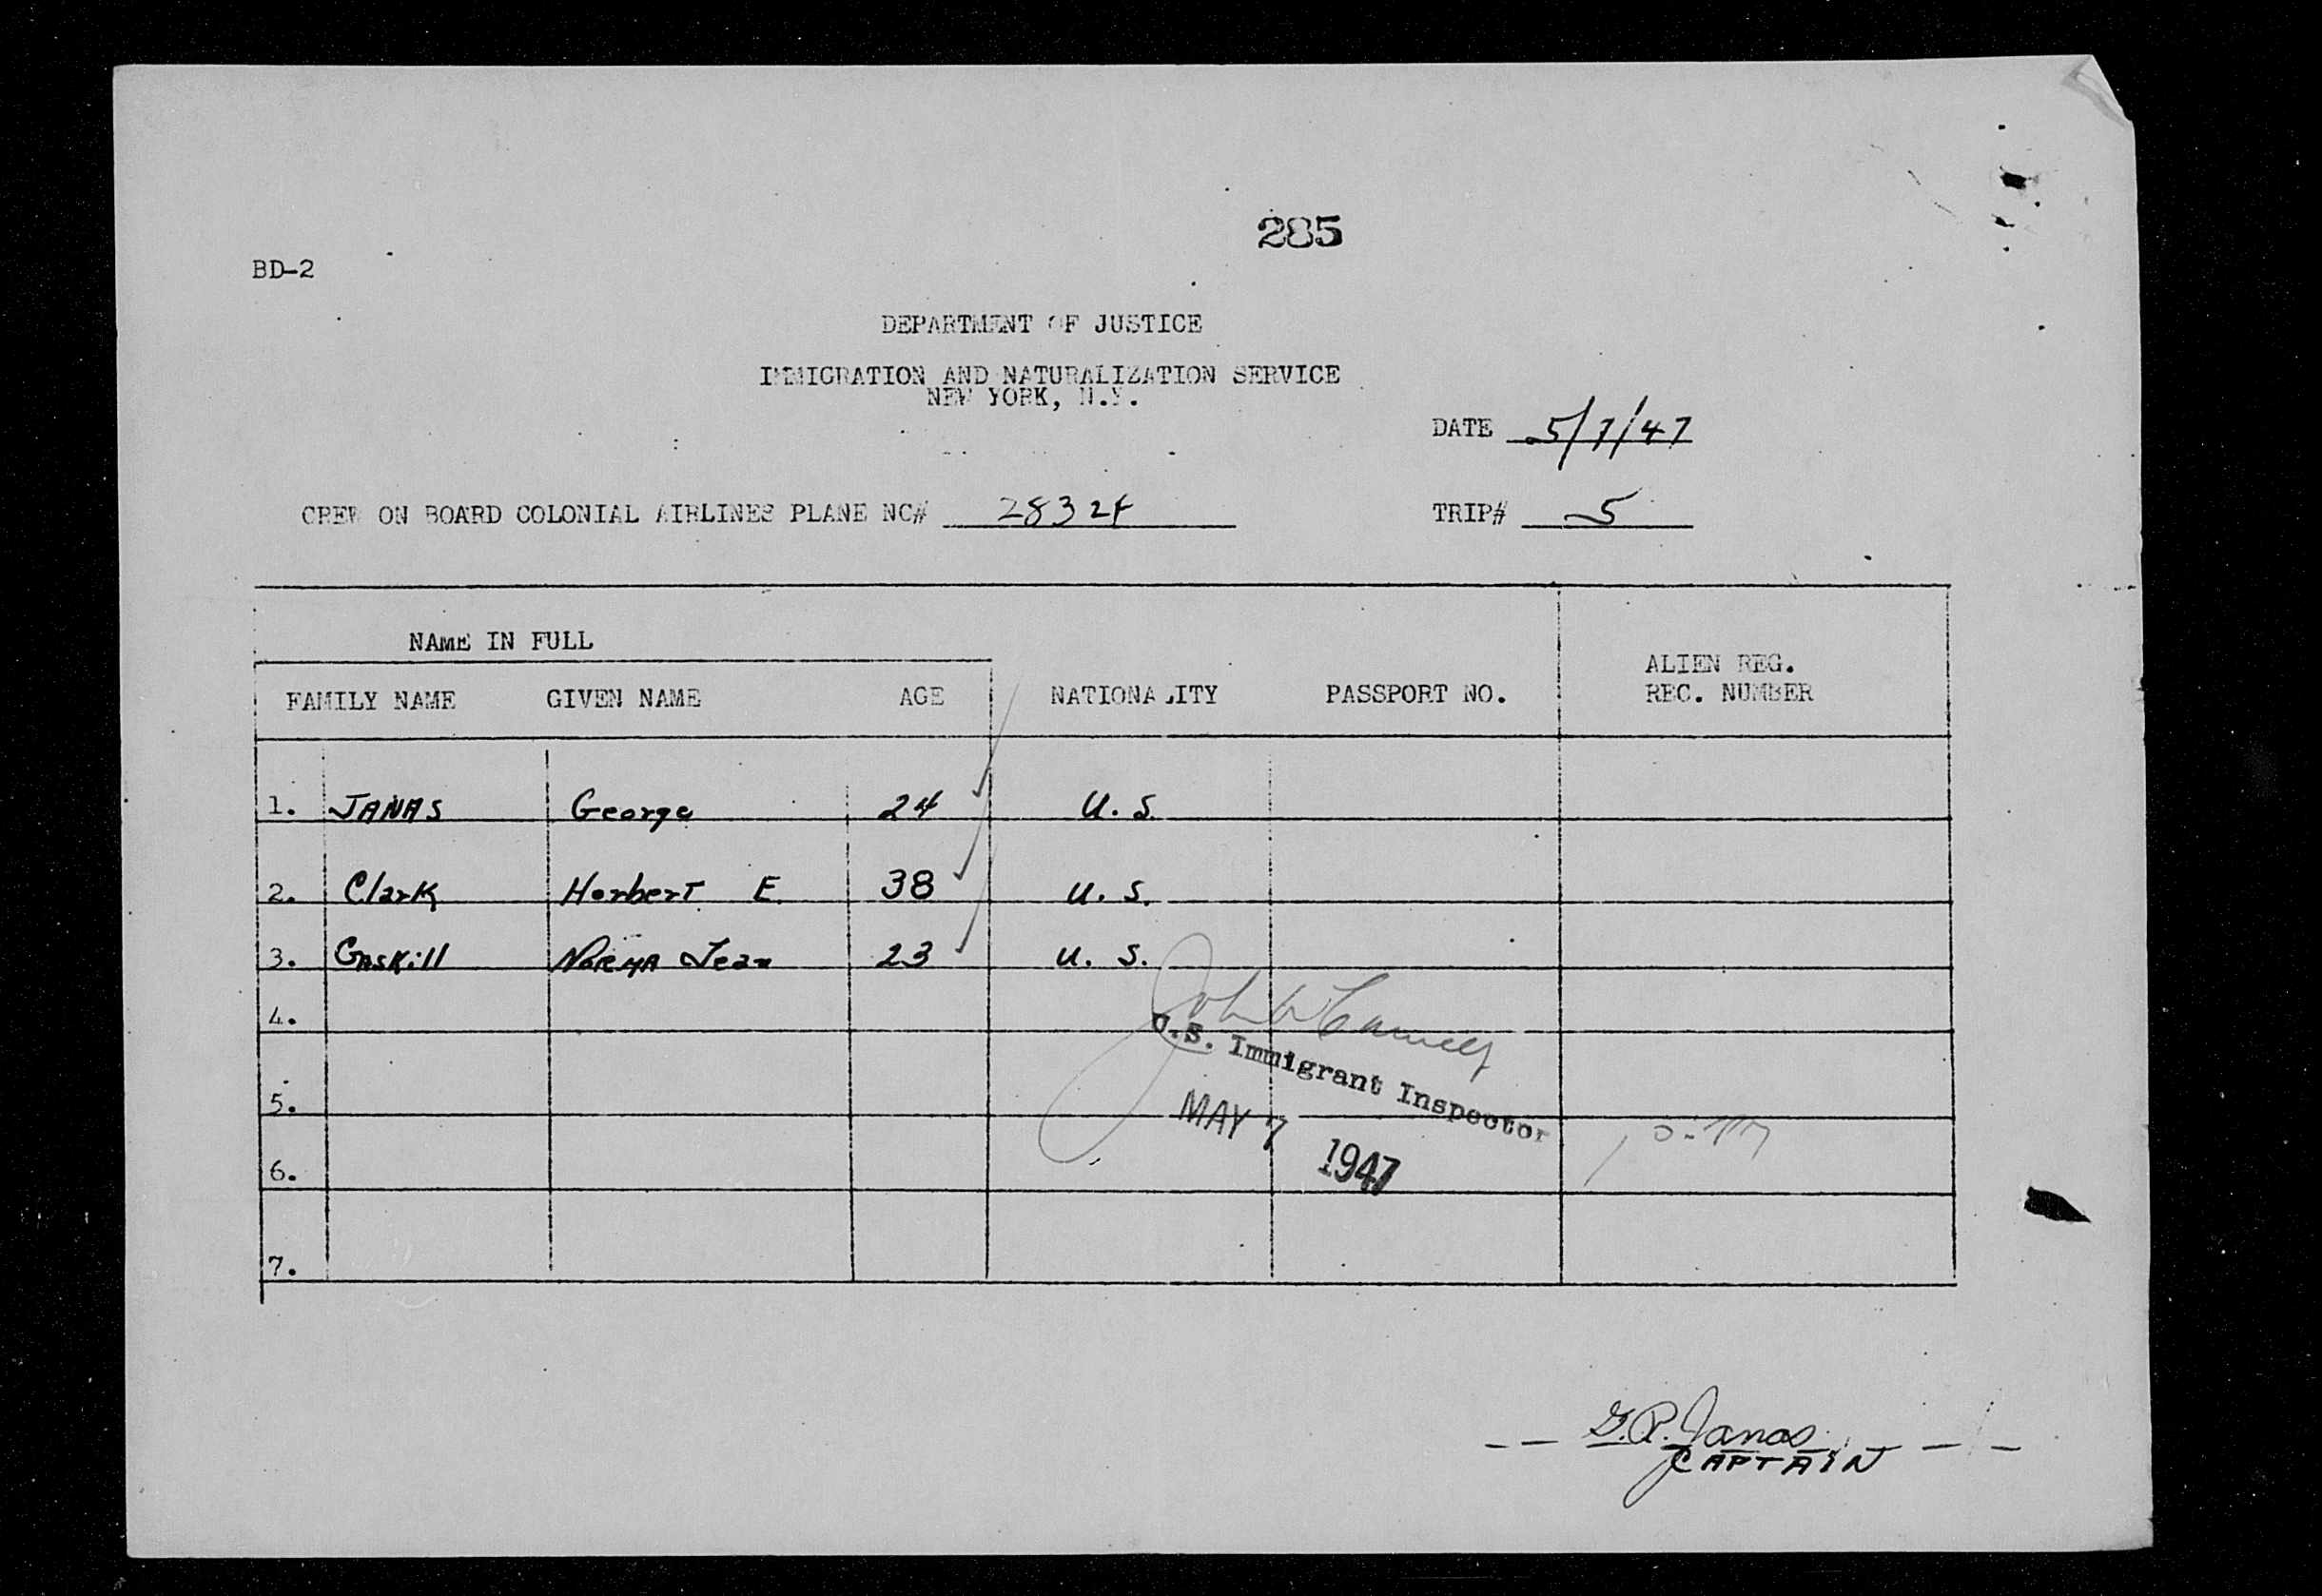 285
BD-2
DEPARTMENT OF JUSTICE
IMMIGRATION AND NATURALIZATION SERVICE
NEW YORK, N.Y.
DATE 5/7/47
CREW ON BOARD COLONIAL AIRLINES PLANE NC# 28324
TRIP# 5
NAME IN FULL
ALIEN REG.
FAMILY NAME GIVEN NAME AGE NATIONALITY PASSPORT NO. REC. NUMBER
1. JANAS George 24 U.S.
2. Clark Herbert E. 38 U.S.
3. Gaskill NORMA Jean 23 U.S.
4.
John W
U.S. Immigrant Inspector
5.
MAY 7 1947
6.
7.
G.P. Janas
CAPTAIN